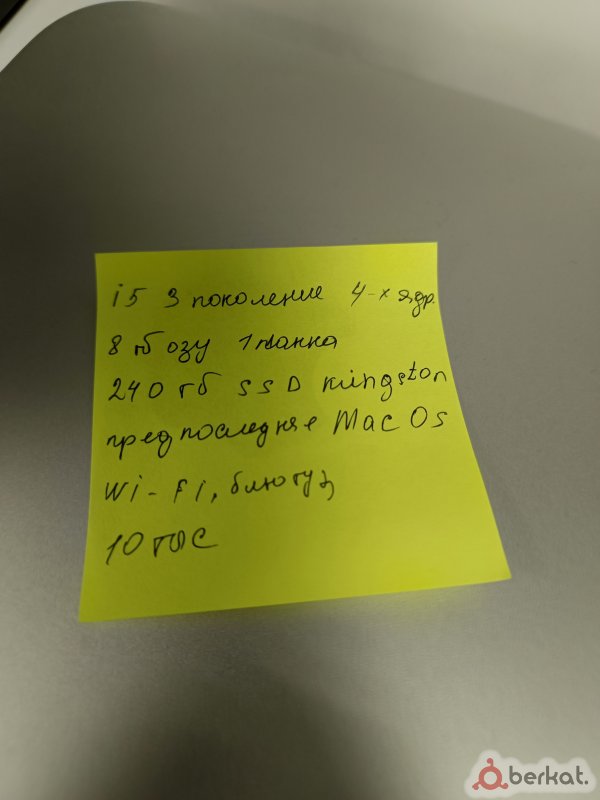 i5 3 поколение 4-х ядр.
8 гб озу 1 планка
240 гб SSD kingston
предпоследняя Mac Os
Wi-Fi, блютуз
10 тыс
berkat.